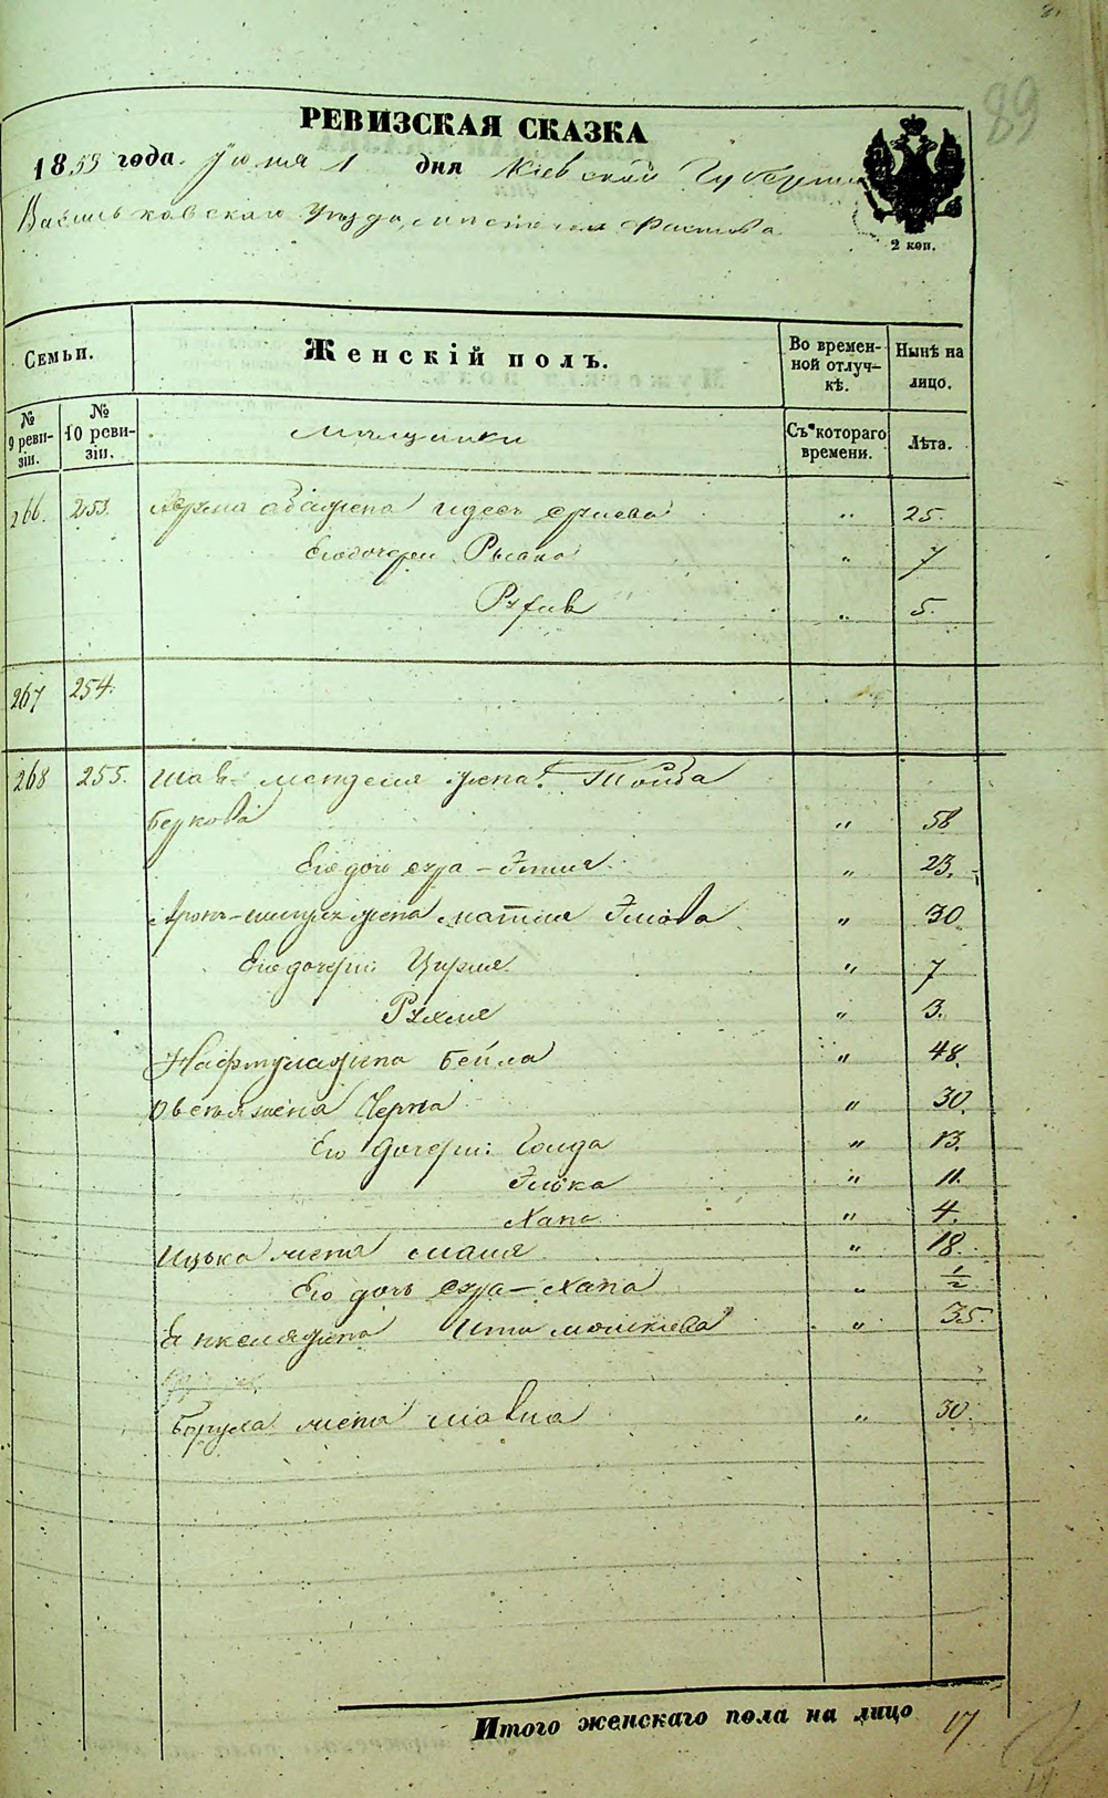 89
РЕВИЗСКАЯ СКАЗКА
18 года. Июня 1 дня Кіевской Губерніи
Васильковскаго Уѣзда, мѣстечка Фастова
2 коп.
Семьи.
Женскій полъ.
Во временной отлучкѣ.
Нынѣ на лицо.
№ 9 ревизіи.
№ 10 ревизіи.
Мѣщанки
Съ котораго времени.
Лѣта.
266. 253. жена " 25.
Его дочери " 7
" 5.
267 254.
268 255. Менделя жена Тойба
Беркова " 58
Его дочь Сура - " 23.
жена " 30.
Его дочери: " 7
Рухля " 3.
Нафтула жена Бейла " 48.
Овсея жена Черна " 30.
Его дочери: Голда " 13.
" 11.
Хана " 4.
Ицька жена " 18.
Его дочь Сура - Хана " 1/2
Янкеля жена Мошкіева " 35.
Боруха жена " 30.
Итого женскаго пола на лицо 17